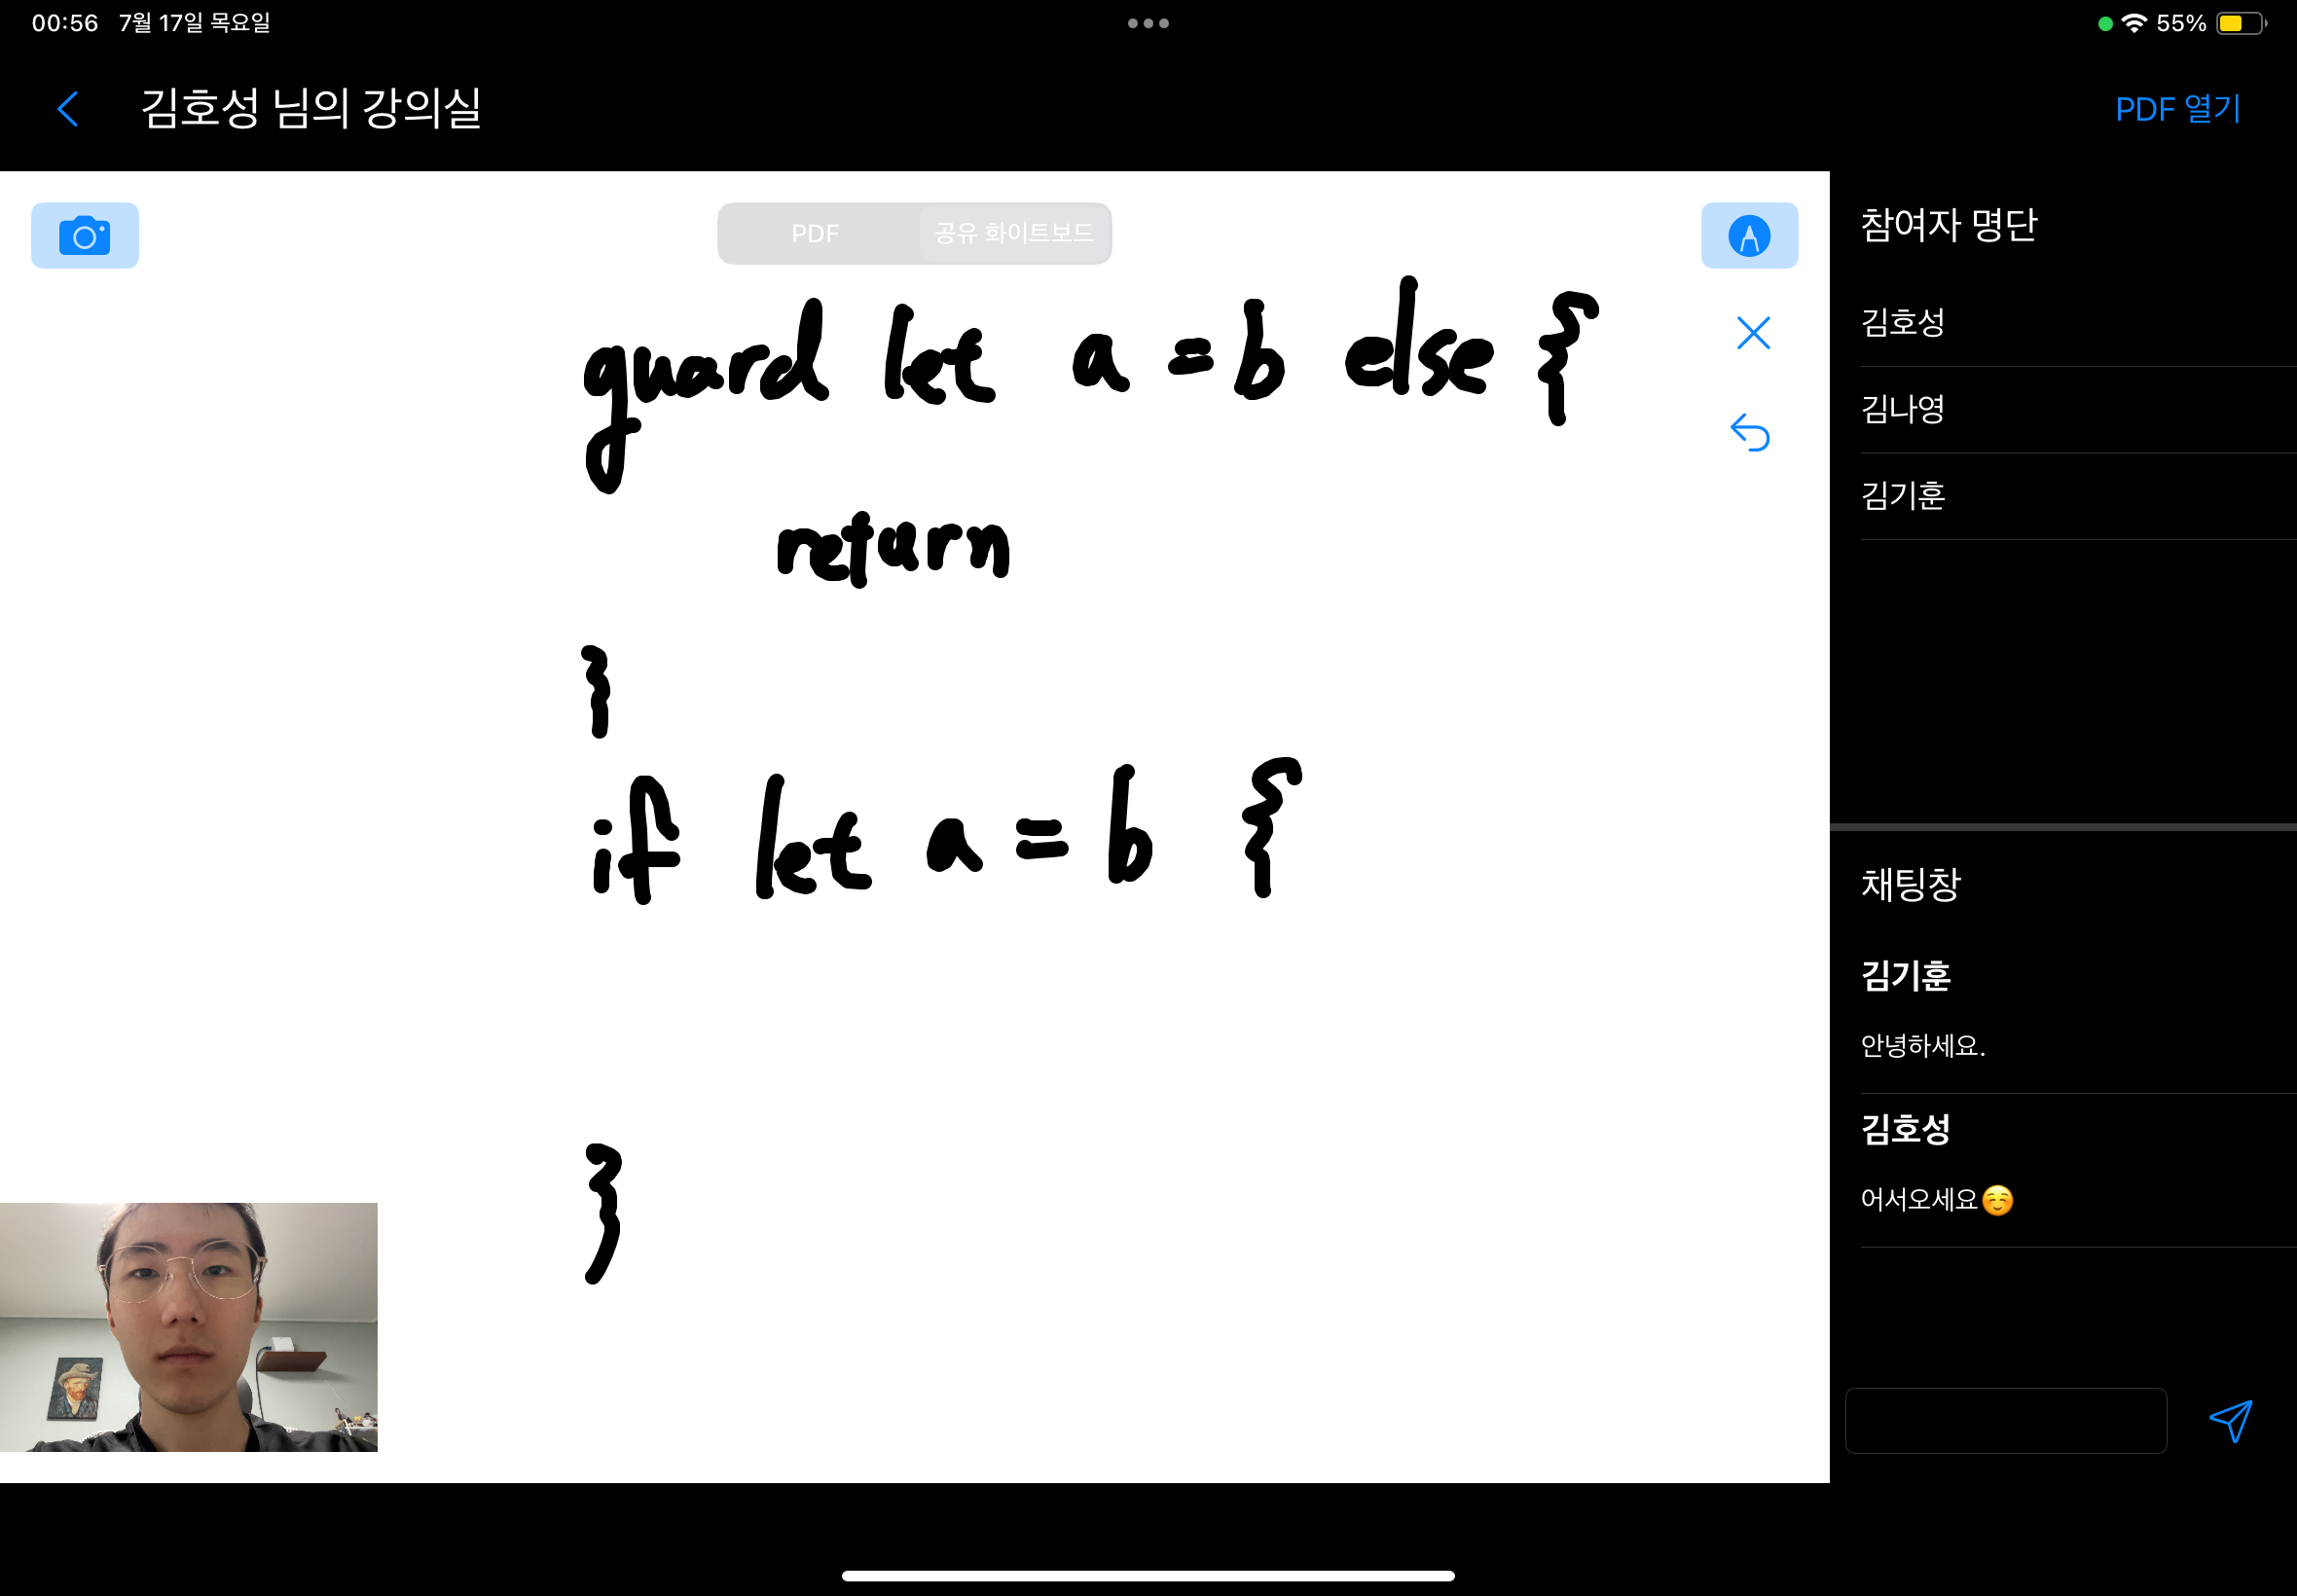 00:56 7월 17일 목요일
55%
김호성 님의 강의실
PDF 열기
PDF
공유 화이트보드
guard let a = b else {
return
}
if let a = b {
}
참여자 명단
김호성
김나영
김기훈
채팅창
김기훈
안녕하세요.
김호성
어서오세요☺️